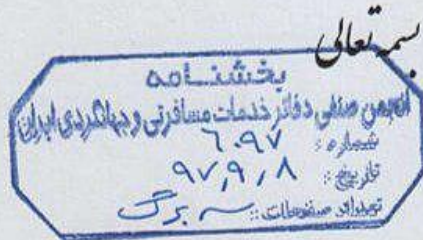 بسمه تعالی
بخشنامه
انجمن صنفی دفاتر خدمات مسافرتی و جهانگردی ایران
شماره : ۶۰۹۷
تاریخ : ۹۷,۹,۸
تعداد صفحات : سه برگ